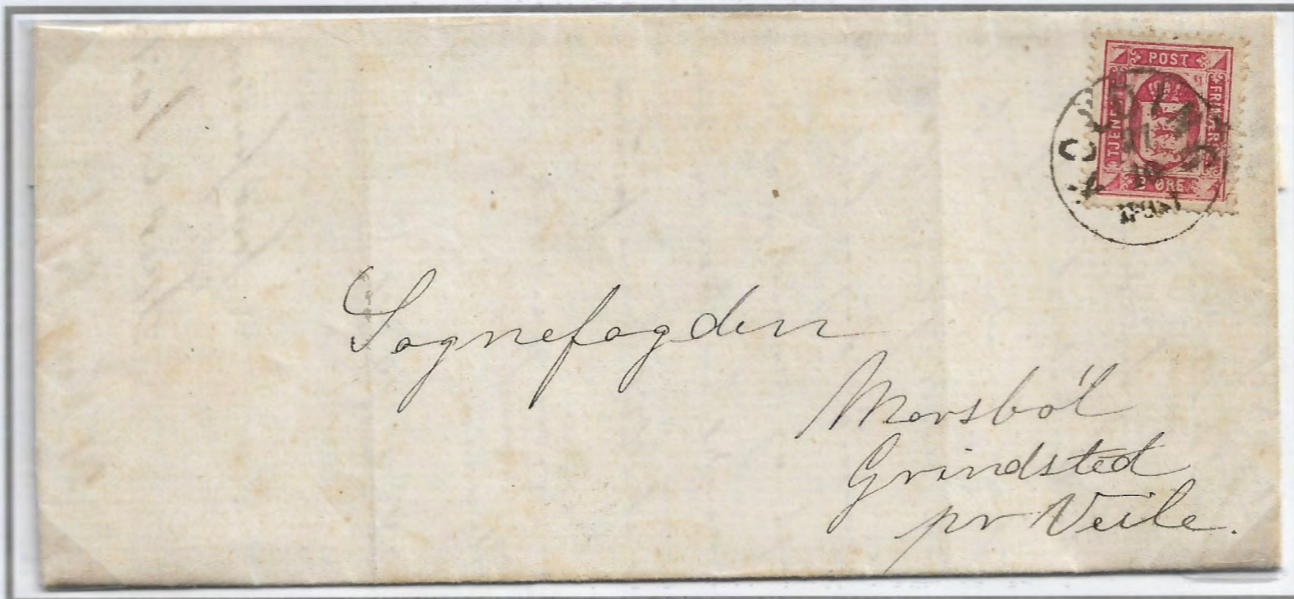 POST
TJENESTE
FRIMÆRKE
ØRE
KOLDING
Sognefogden
Morsböl
Grindsted
pr Veile.